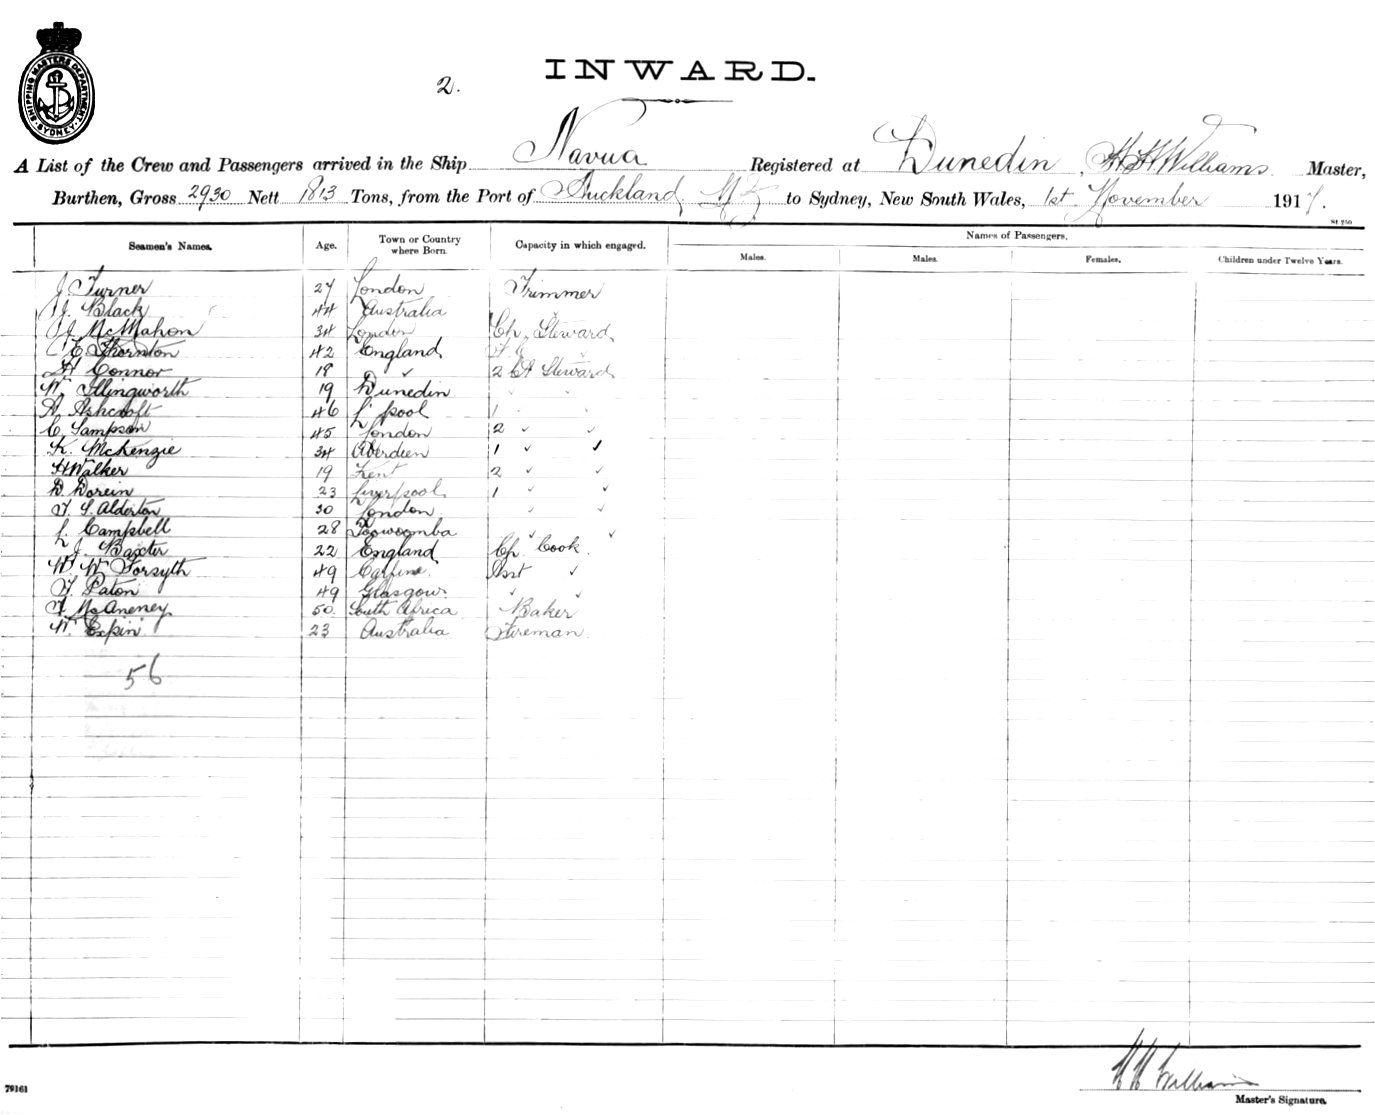 SHIPPING MASTERS DEPARTMENT. SYDNEY.
INWARD.
2.
A List of the Crew and Passengers arrived in the Ship Navua Registered at Dunedin, H H Williams Master,
Burthen, Gross 2930 Nett 1813 Tons, from the Port of Auckland NZ to Sydney, New South Wales, 1st November 1917.
St 250
Seamen's Names. Age. Town or Country where Born. Capacity in which engaged. Names of Passengers.
Males. Males. Females. Children under Twelve Years.
J Turner 27 London Trimmer
J. Black 44 Australia
J McMahon 34 London Ch. Steward
E Thornton 42 England
H Connor 18 ✓ 2 Cl Steward
W. Illingworth 19 Dunedin
A. Ashcroft 46 L'pool 1
C. Sampson 45 London 2 ✓ ✓
K. McKenzie 34 Aberdeen 1 ✓ ✓
H Walker 19 Kent 2 ✓ ✓
D. Dorein 23 Liverpool 1 ✓ ✓
F. S. Alderton 30 London ✓ ✓
L. Campbell 28 Toowoomba ✓ ✓
J. Baxter 22 England Ch Cook
W W Forsyth 49 Carfine Asst ✓
F. Paton 49 Glasgow ✓ ✓
F. McAneney 50 South Africa Baker
W. Expin 23 Australia Fireman
56
H H Williams
Master's Signature.
79161